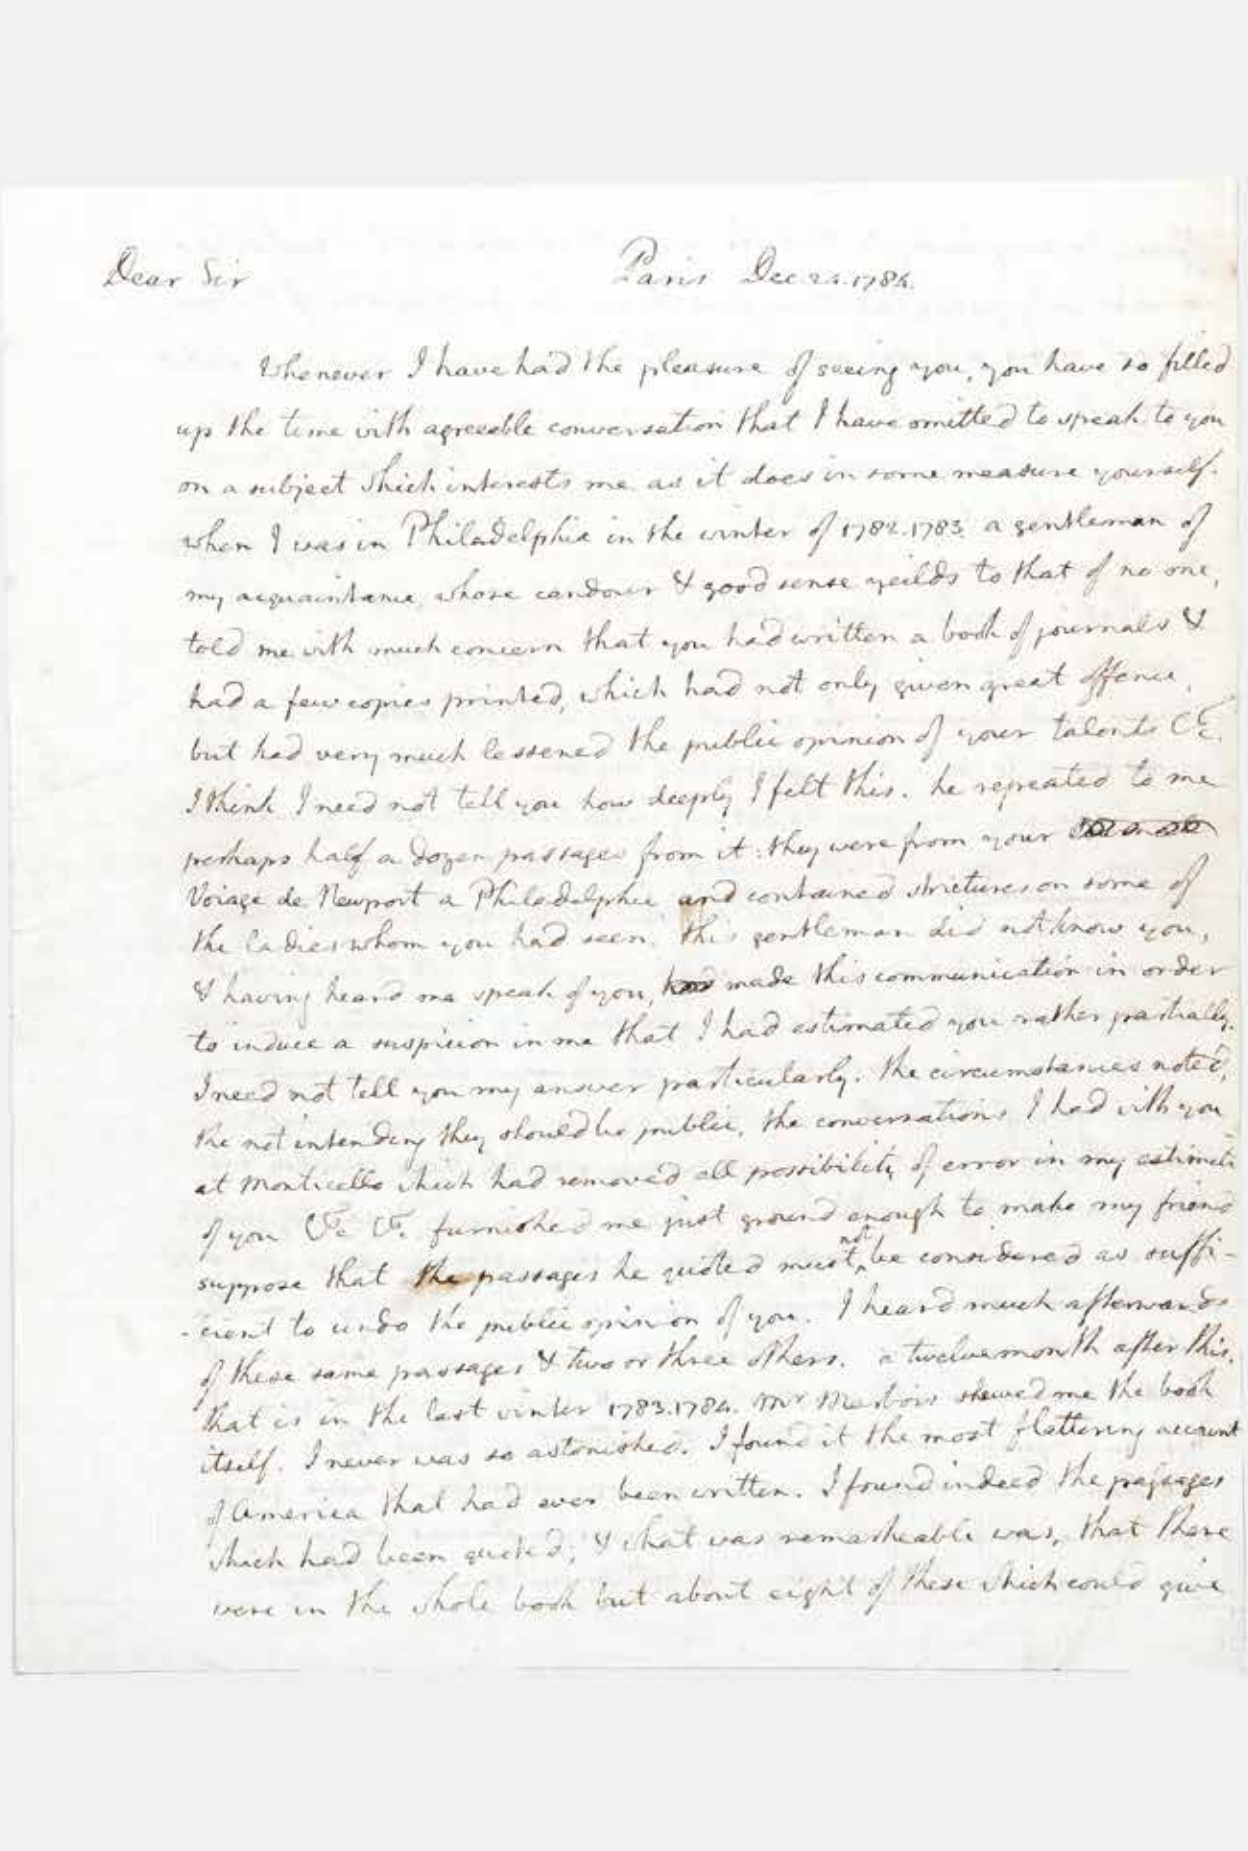 Dear Sir Paris Dec. 24. 1784.
Whenever I have had the pleasure of seeing you, you have so filled
up the time with agreeable conversation that I have omitted to speak to you
on a subject which interests me as it does in some measure yourself.
when I was in Philadelphia in the winter of 1782.1783. a gentleman of
my acquaintance, whose candour & good sense yeilds to that of no one,
told me with much concern that you had written a book of journals &
had a few copies printed, which had not only given great offence,
but had very much lessened the public opinion of your talents &c.
I think I need not tell you how deeply I felt this. he repeated to me
perhaps half a dozen passages from it: they were from your
Voiage de Newport a Philadelphie and contained strictures on some of
the ladies whom you had seen. this gentleman did not know you,
& having heard me speak of you, made this communication in order
to induce a suspicion in me that I had estimated you rather partially.
I need not tell you my answer particularly. the circumstances noted,
the not intending they should be public, the conversations I had with you
at Monticello which had removed all possibility of error in my estimate
of you &c &c. furnished me just ground enough to make my friend
suppose that the passages he quoted must not be considered as suffi-
-cient to undo the public opinion of you. I heard much afterwards
of these same passages & two or three others. a twelvemonth after this,
that is in the last winter 1783.1784. Mr Marbois shewed me the book
itself. I never was so astonished. I found it the most flattering account
of America that had ever been written. I found indeed the passages
which had been quoted; & what was remarkeable was, that there
were in the whole book but about eight of these which could give